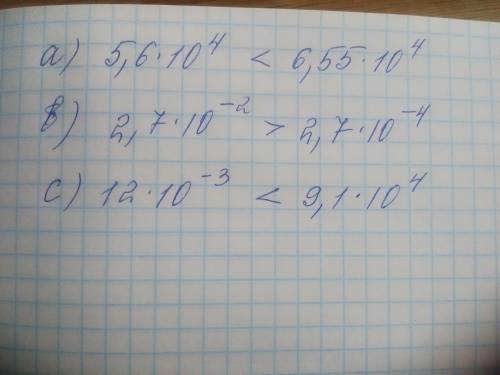 a) 5,6·10⁴ < 6,55·10⁴
b) 2,7·10⁻² > 2,7·10⁻⁴
c) 12·10⁻³ < 9,1·10⁴